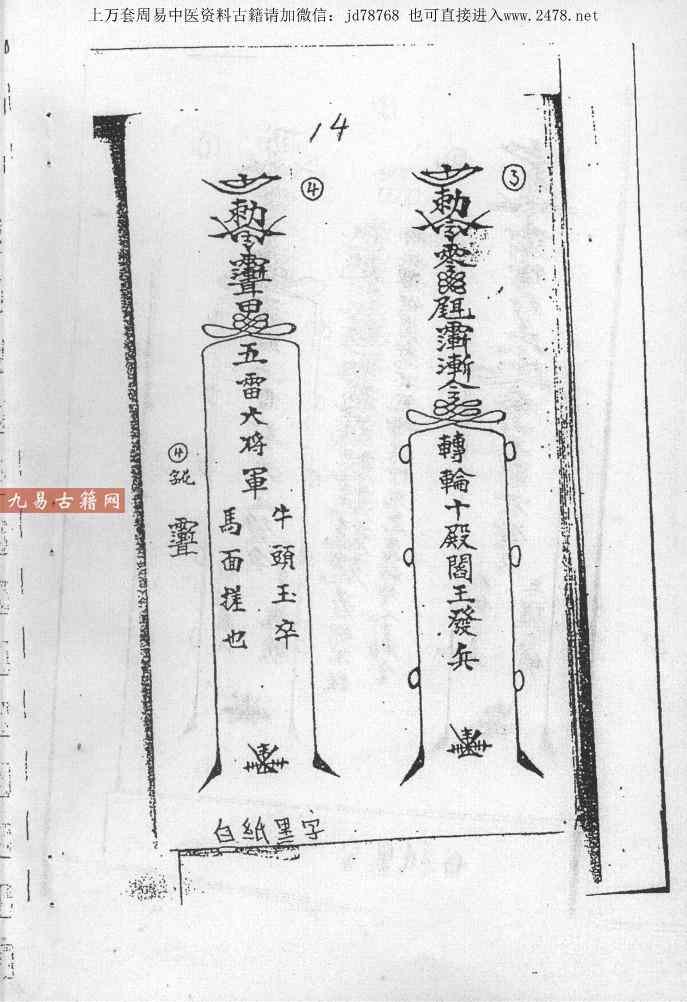 上万套周易中医资料古籍请加微信：jd78768 也可直接进入www.2478.net
14
③
勅令
轉輪十殿閻王發兵
④
勅令
五雷大将軍
牛頭玉卒
馬面搓也
④
九易古籍网
白紙墨字